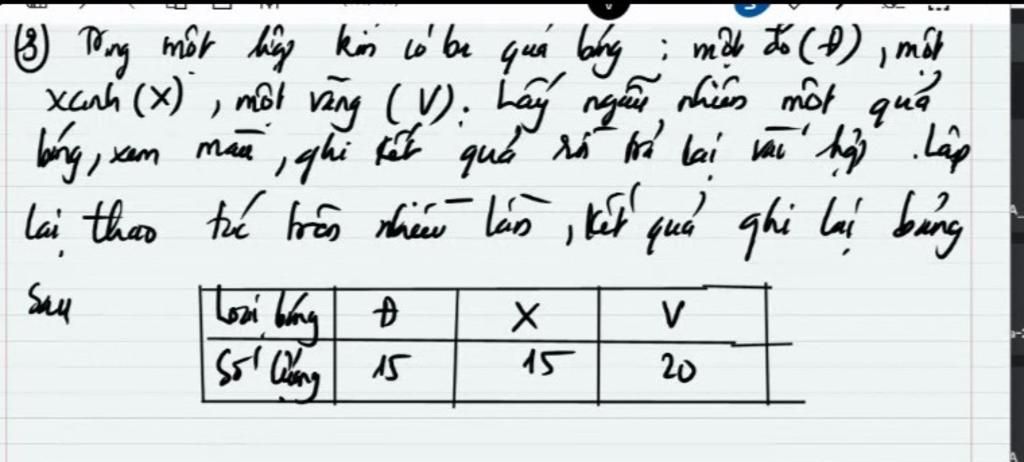 ③ Trong một hộp kín có ba quả bóng : một đỏ (Đ), một
xanh (X), một vàng (V). Lấy ngẫu nhiên một quả
bóng, xem màu, ghi kết quả rồi trả lại vào hộp. Lặp
lại thao tác trên nhiều lần, kết quả ghi lại bảng
sau
Loại bóng Đ X V
Số lượng 15 15 20